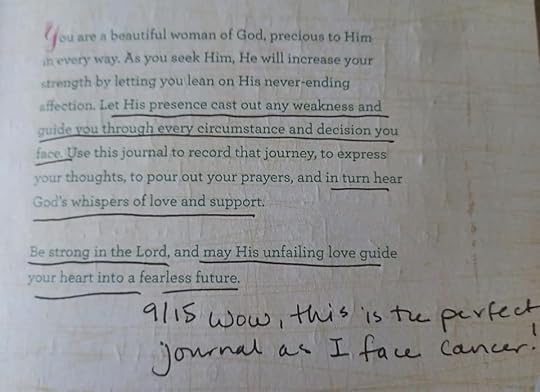 You are a beautiful woman of God, precious to Him
in every way. As you seek Him, He will increase your
strength by letting you lean on His never-ending
affection. Let His presence cast out any weakness and
guide you through every circumstance and decision you
face. Use this journal to record that journey, to express
your thoughts, to pour out your prayers, and in turn hear
God's whispers of love and support.
Be strong in the Lord, and may His unfailing love guide
your heart into a fearless future.
9/15 Wow, this is the perfect
journal as I face cancer!